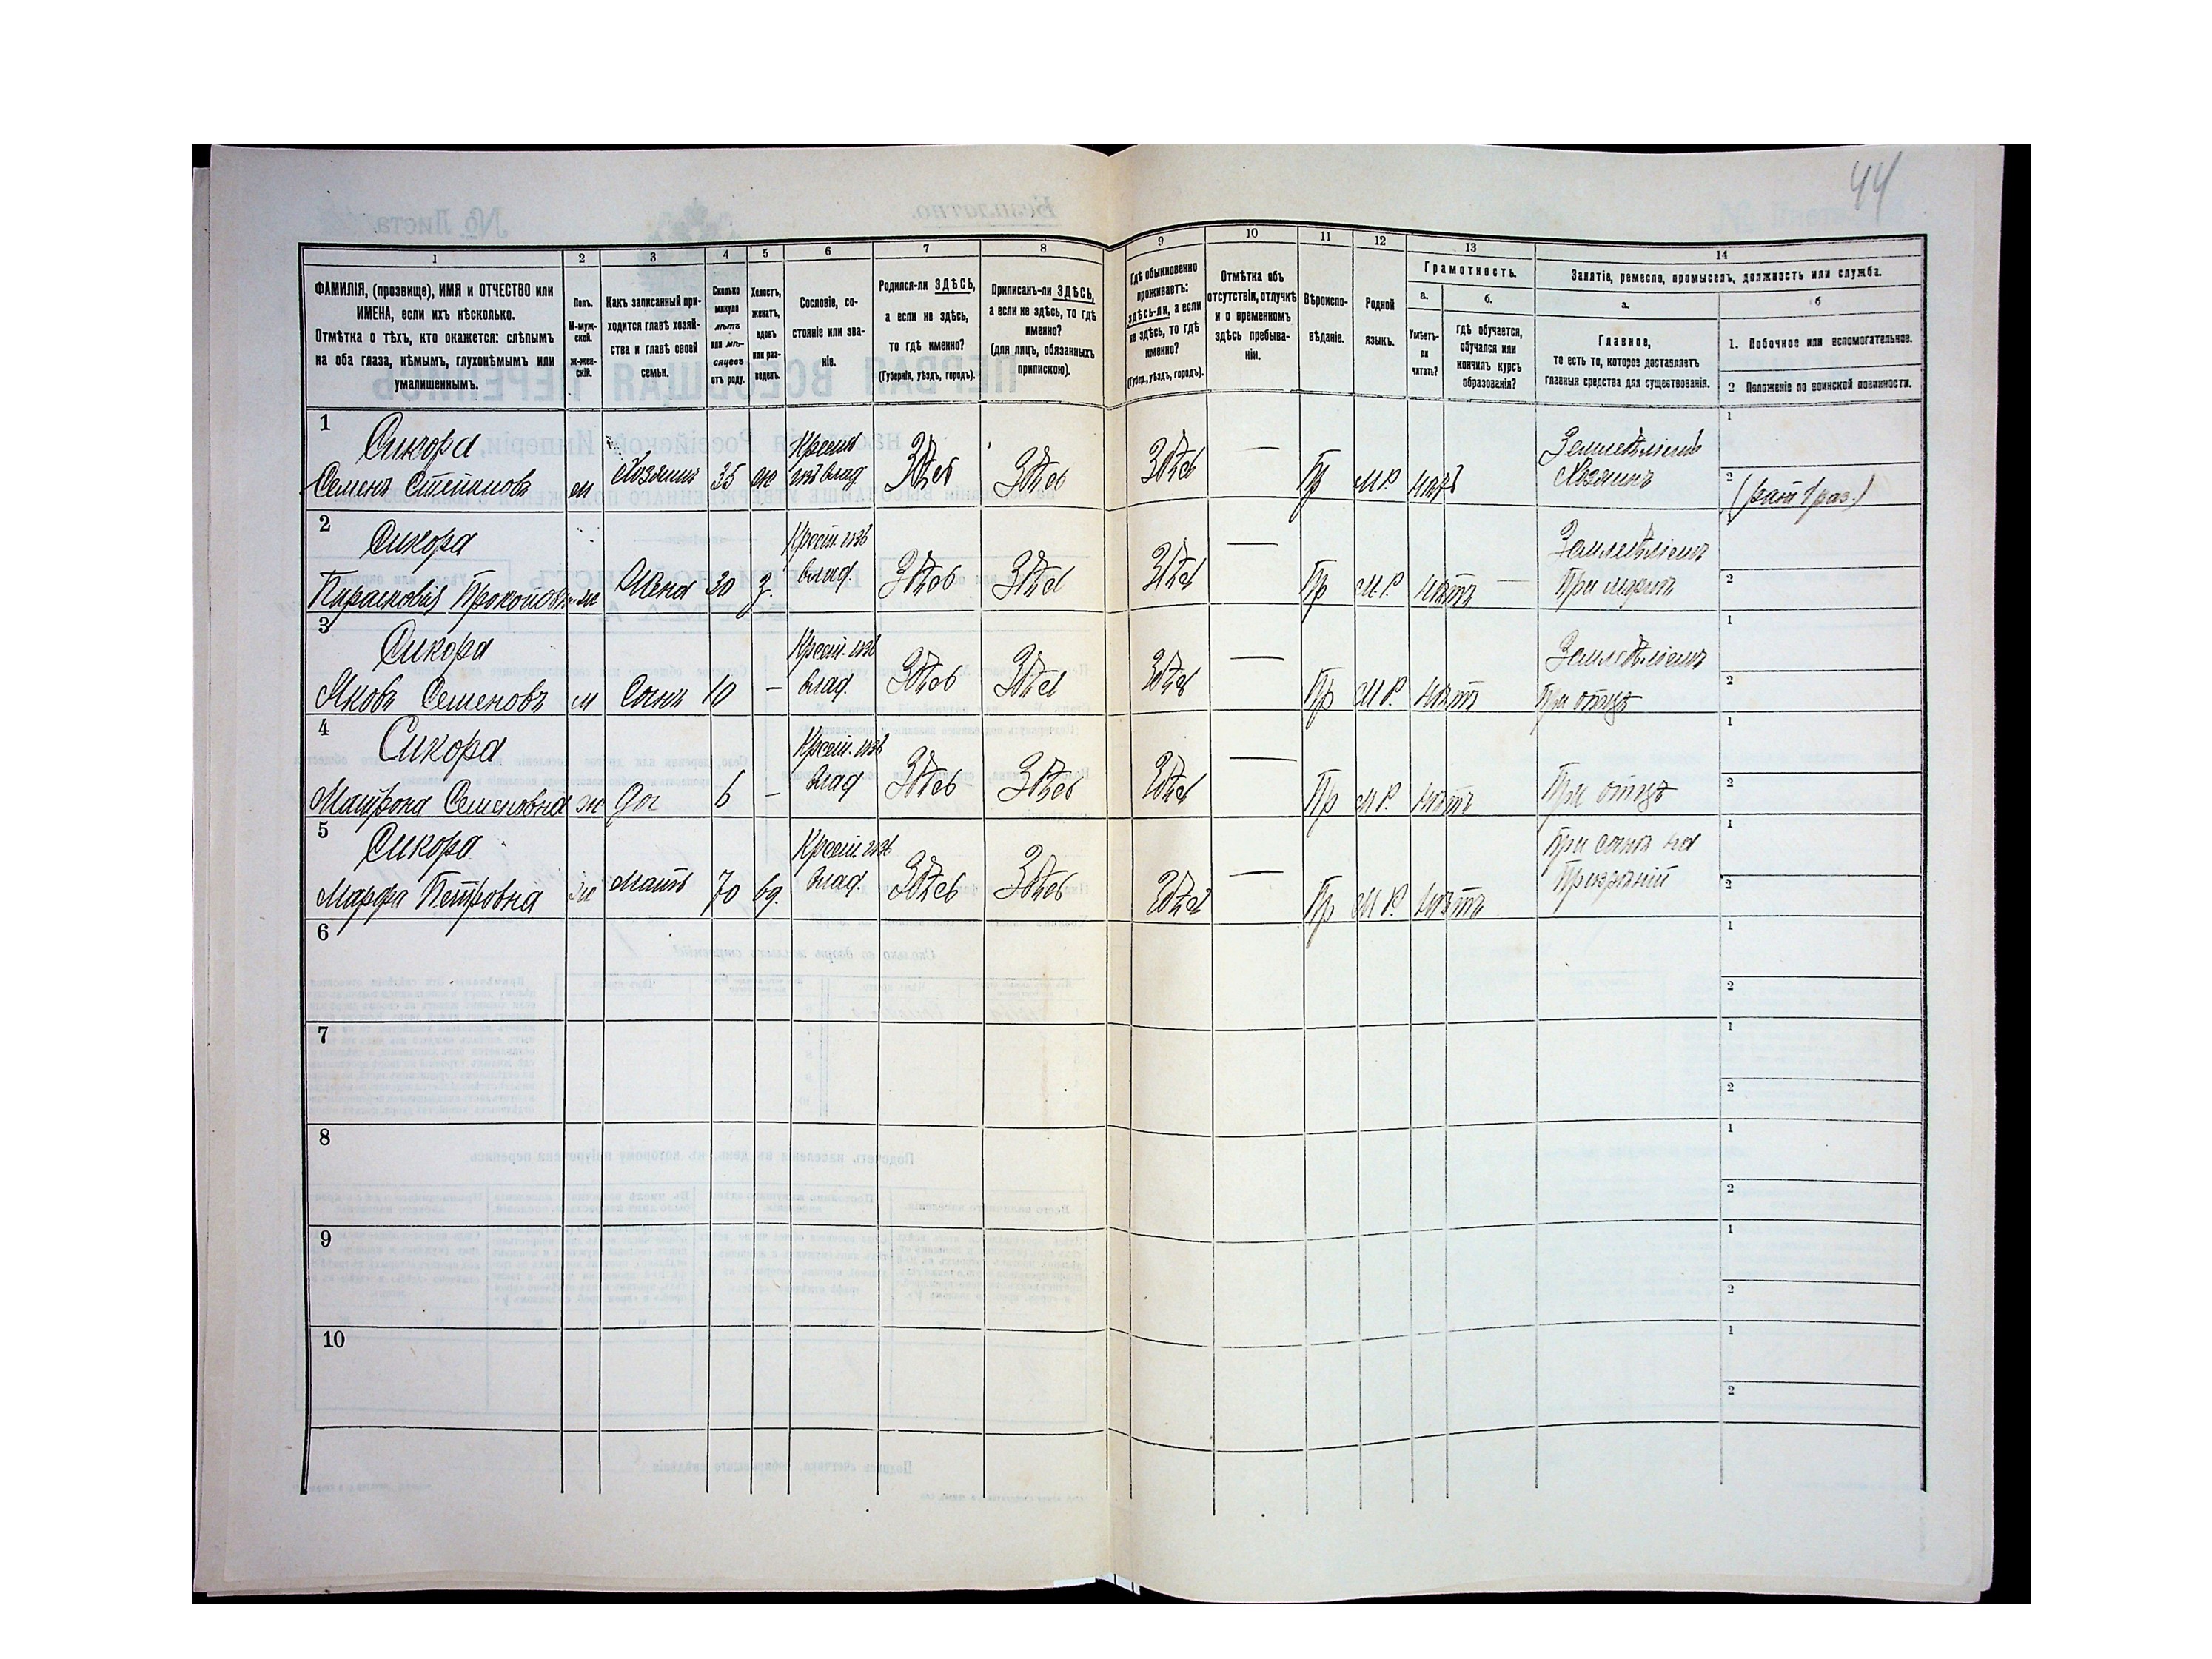 44
1 2 3 4 5 6 7 8 9 10 11 12 13 14
ФАМИЛІЯ, (прозвище), ИМЯ и ОТЧЕСТВО или
ИМЕНА, если ихъ нѣсколько.
Отмѣтка о тѣхъ, кто окажется: слѣпымъ
на оба глаза, нѣмымъ, глухонѣмымъ или
умалишеннымъ.
Полъ.
М-муж-
ской.
Ж-жен-
скій.
Какъ записанный при-
ходится главѣ хозяй-
ства и главѣ своей
семьи.
Сколько
минуло
лѣтъ
или мѣ-
сяцевъ
отъ роду.
Холостъ,
женатъ,
вдовъ
или раз-
веденъ.
Сословіе, со-
стояніе или зва-
ніе.
Родился-ли ЗДѢСЬ,
а если не здѣсь,
то гдѣ именно?
(Губернія, уѣздъ, городъ).
Приписанъ-ли ЗДѢСЬ,
а если не здѣсь, то гдѣ
именно?
(для лицъ, обязанныхъ
припискою).
Гдѣ обыкновенно
проживаетъ:
здѣсь-ли, а если
не здѣсь, то гдѣ
именно?
(Губер., уѣздъ, городъ).
Отмѣтка объ
отсутствіи, отлучкѣ
и о временномъ
здѣсь пребыва-
ніи.
Вѣроиспо-
вѣданіе.
Родной
языкъ.
Грамотность.
а.
Умѣетъ-
ли
читать?
б.
гдѣ обучается,
обучался или
кончилъ курсъ
образованія?
Занятіе, ремесло, промыселъ, должность или служба.
а.
Главное,
то есть то, которое доставляетъ
главныя средства для существованія.
б
1. Побочное или вспомогательное.
2 Положеніе по воинской повинности.
1
Сикора
Семенъ Степановъ м Хозяинъ 35 ж Крестья
изъ влад. Здѣсь Здѣсь Здѣсь — Пр М.Р. нѣтъ
Земледѣліемъ
Хозяинъ
1
2 (рат 1 раз.)
2
Сикора
Парасковія Прокопов ж Жена 30 з. Крест. изъ
влад. Здѣсь Здѣсь Здѣсь — Пр М.Р. нѣтъ —
Земледѣліемъ
При мужѣ
2
3
Сикора
Яковъ Семеновъ м Сынъ 10 — Крест. изъ
влад. Здѣсь Здѣсь Здѣсь — Пр М.Р. нѣтъ
Земледѣліемъ
При отцѣ
1
2
4
Сикора
Матрона Семеновна ж Доч 6 — Крест. изъ
влад Здѣсь Здѣсь Здѣсь — Пр М.Р. нѣтъ
При отцѣ
1
2
5
Сикора
Марфа Петровна ж Мать 70 вд. Крест. изъ
влад. Здѣсь Здѣсь Здѣсь — Пр М.Р. нѣтъ
При сынѣ на
Призрѣніи
1
2
6
1
2
7
1
2
8
1
2
9
1
2
10
1
2